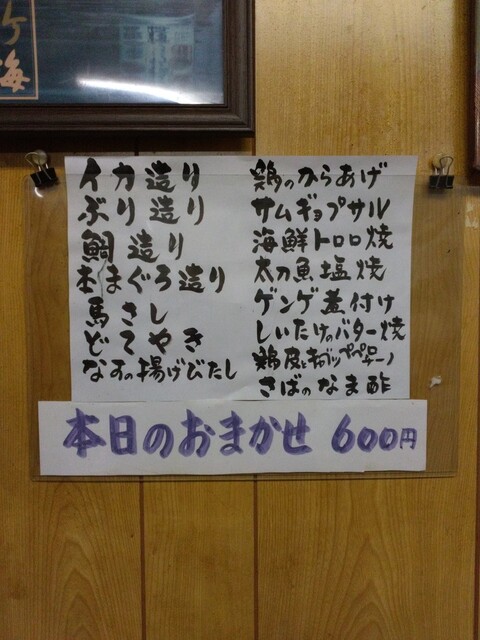 ケ海
イカ造り
ぶり造り
鯛造り
本まぐろ造り
馬さし
どてやき
なすの揚げびたし
鶏のからあげ
サムギョプサル
海鮮トロロ焼
太刀魚塩焼
ゲンゲ煮付け
しいたけのバター焼
鶏皮とキャベツペペロンチーノ
さばのなま酢
本日のおまかせ 600円